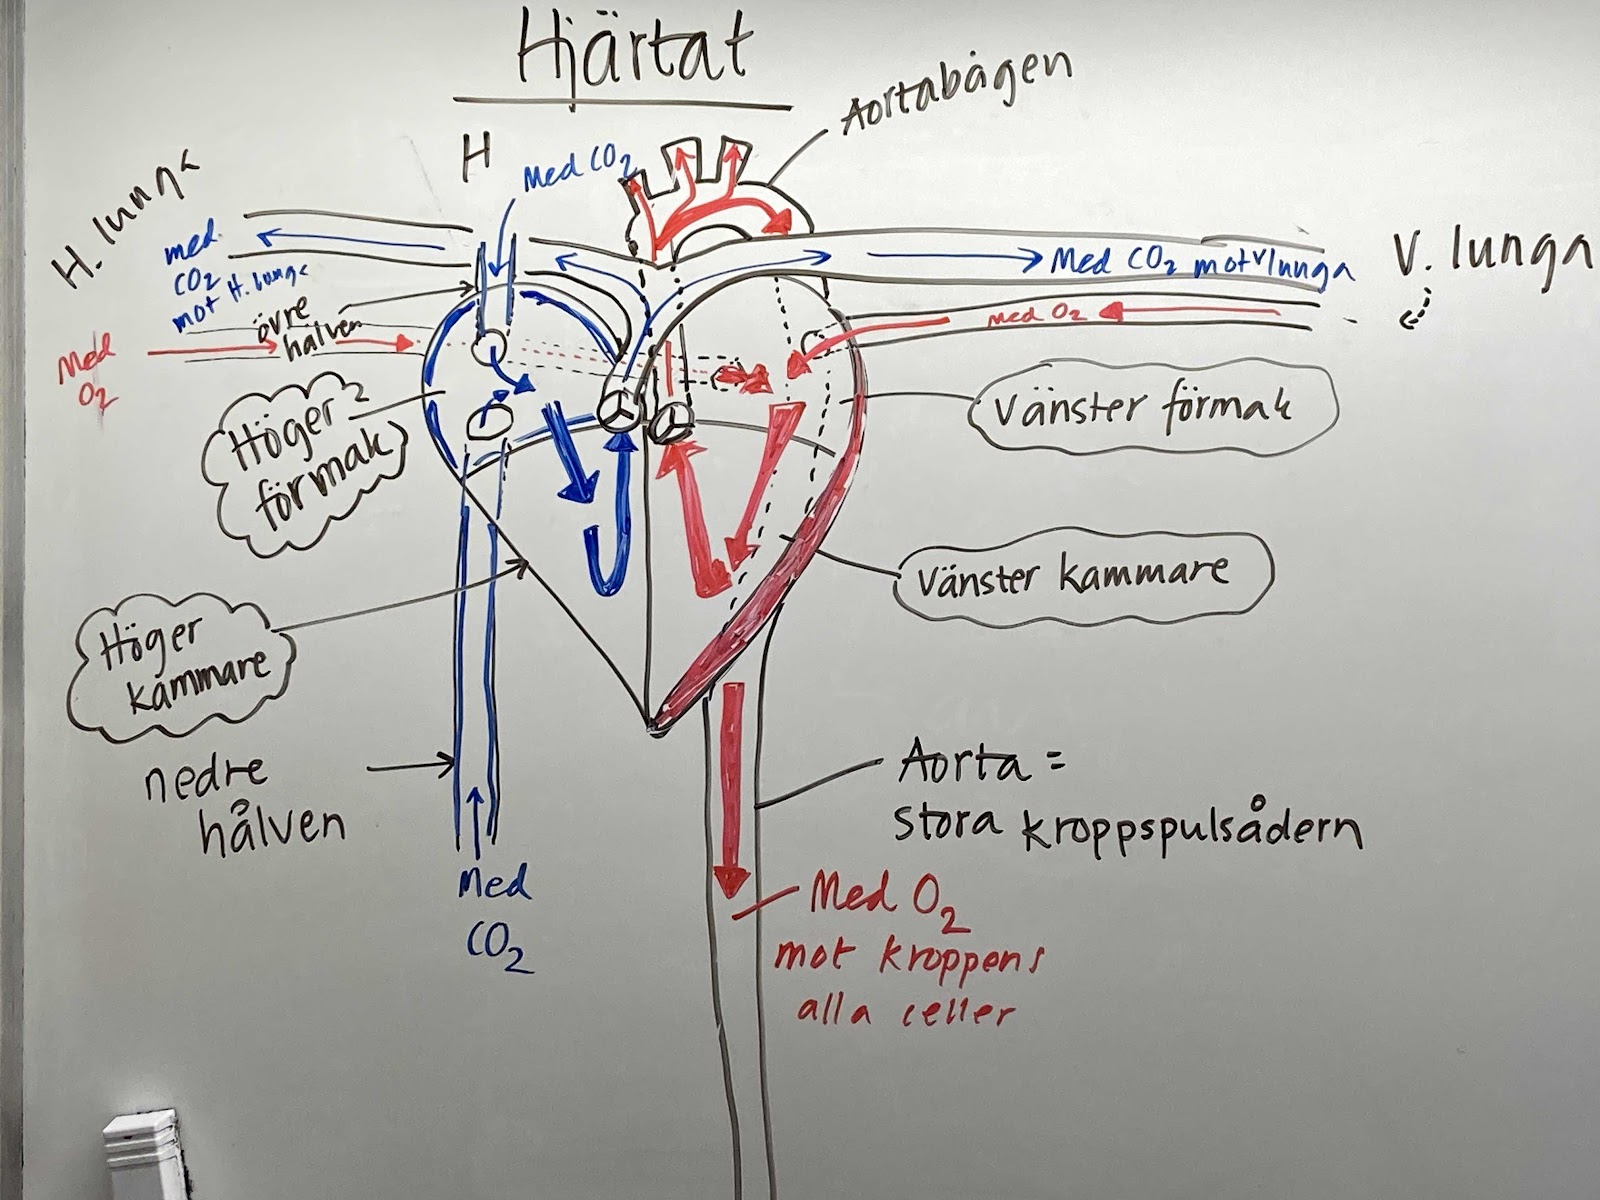 Hjärtat
Aortabågen
H
Med CO2
H. lunga
med
CO2
mot H. lunga
Med CO2 mot v lunga
V. lunga
övre
hålven
Med O2
Med
O2
Höger
förmak
Vänster förmak
Vänster kammare
Höger
kammare
nedre
hålven
Aorta =
stora kroppspulsådern
Med
CO2
Med O2
mot kroppens
alla celler